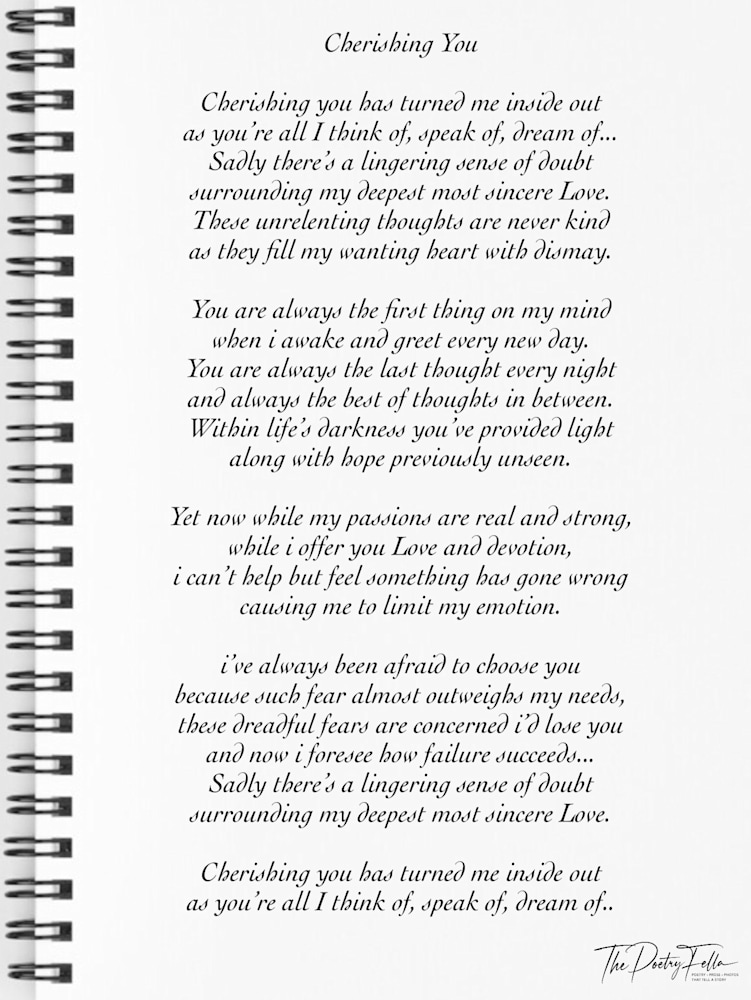 Cherishing You
Cherishing you has turned me inside out
as you're all I think of, speak of, dream of...
Sadly there's a lingering sense of doubt
surrounding my deepest most sincere Love.
These unrelenting thoughts are never kind
as they fill my wanting heart with dismay.
You are always the first thing on my mind
when i awake and greet every new day.
You are always the last thought every night
and always the best of thoughts in between.
Within life's darkness you've provided light
along with hope previously unseen.
Yet now while my passions are real and strong,
while i offer you Love and devotion,
i can't help but feel something has gone wrong
causing me to limit my emotion.
i've always been afraid to choose you
because such fear almost outweighs my needs,
these dreadful fears are concerned i'd lose you
and now i foresee how failure succeeds...
Sadly there's a lingering sense of doubt
surrounding my deepest most sincere Love.
Cherishing you has turned me inside out
as you're all I think of, speak of, dream of..
The Poetry Fella
POETRY • PROSE • PHOTOS
THAT TELL A STORY